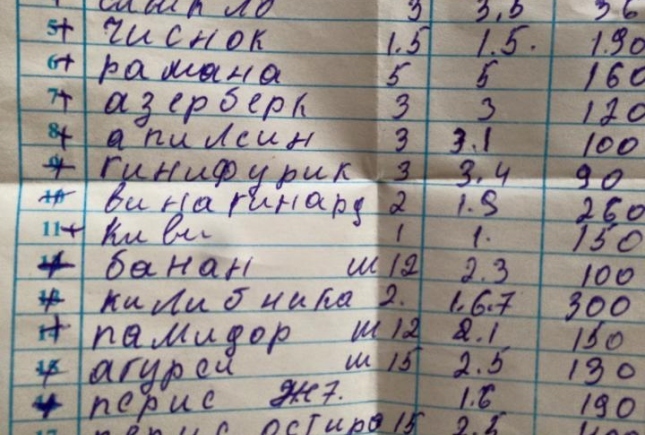 5+ чиснок 1.5 1.5. 190
6+ рамана 5 5 160
7+ азерберк 3 3 120
8+ апилсин 3 3.1 100
9+ гинифурик 3 3.4 90
10+ винагинард 2 1.9 260
11+ киви 1 1. 150
банан ш 12 2.3 100
килибника 2. 1.6.7 300
памидор ш 12 2.1 150
агурси ш 15 2.5 130
перис 1.6 190
перис остиро 15 2.5